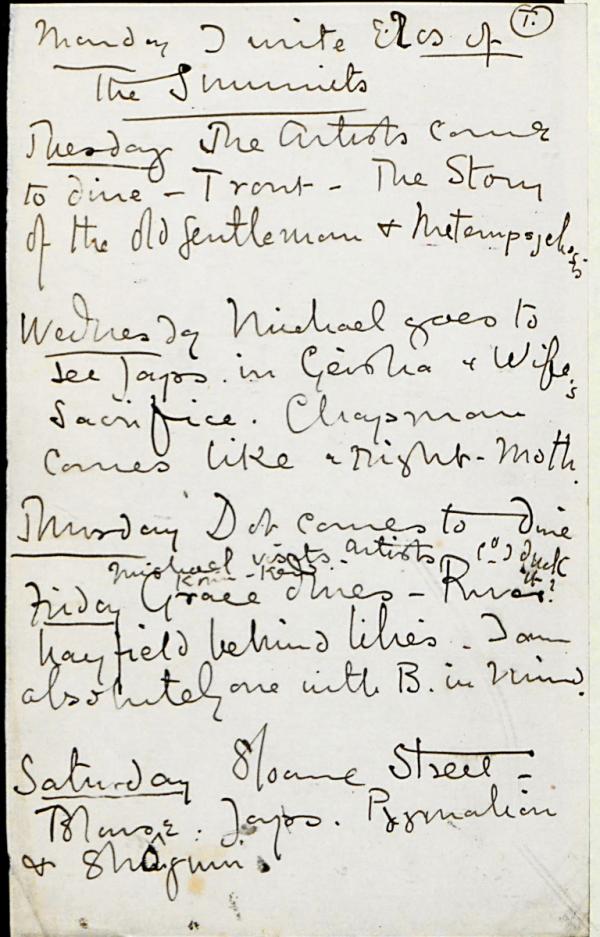 T.
Monday I write Eros of
The Summits
Thursday The Artists come
to dine - Trout - The Story
of the old gentleman & Metempsychosis
Wednesday Michael goes to
see Japs. in Geisha & Wife's
Sacrifice. Chapman
comes like a night-moth.
Thursday Dot comes to dine
Michael visits artists (o) duck
Friday Grace dines - River.
hayfield behind lilies. I am
absolutely one with B. in mind.
Saturday Sloane Street -
Blouse. Japs. Pygmalion
& Shogun.